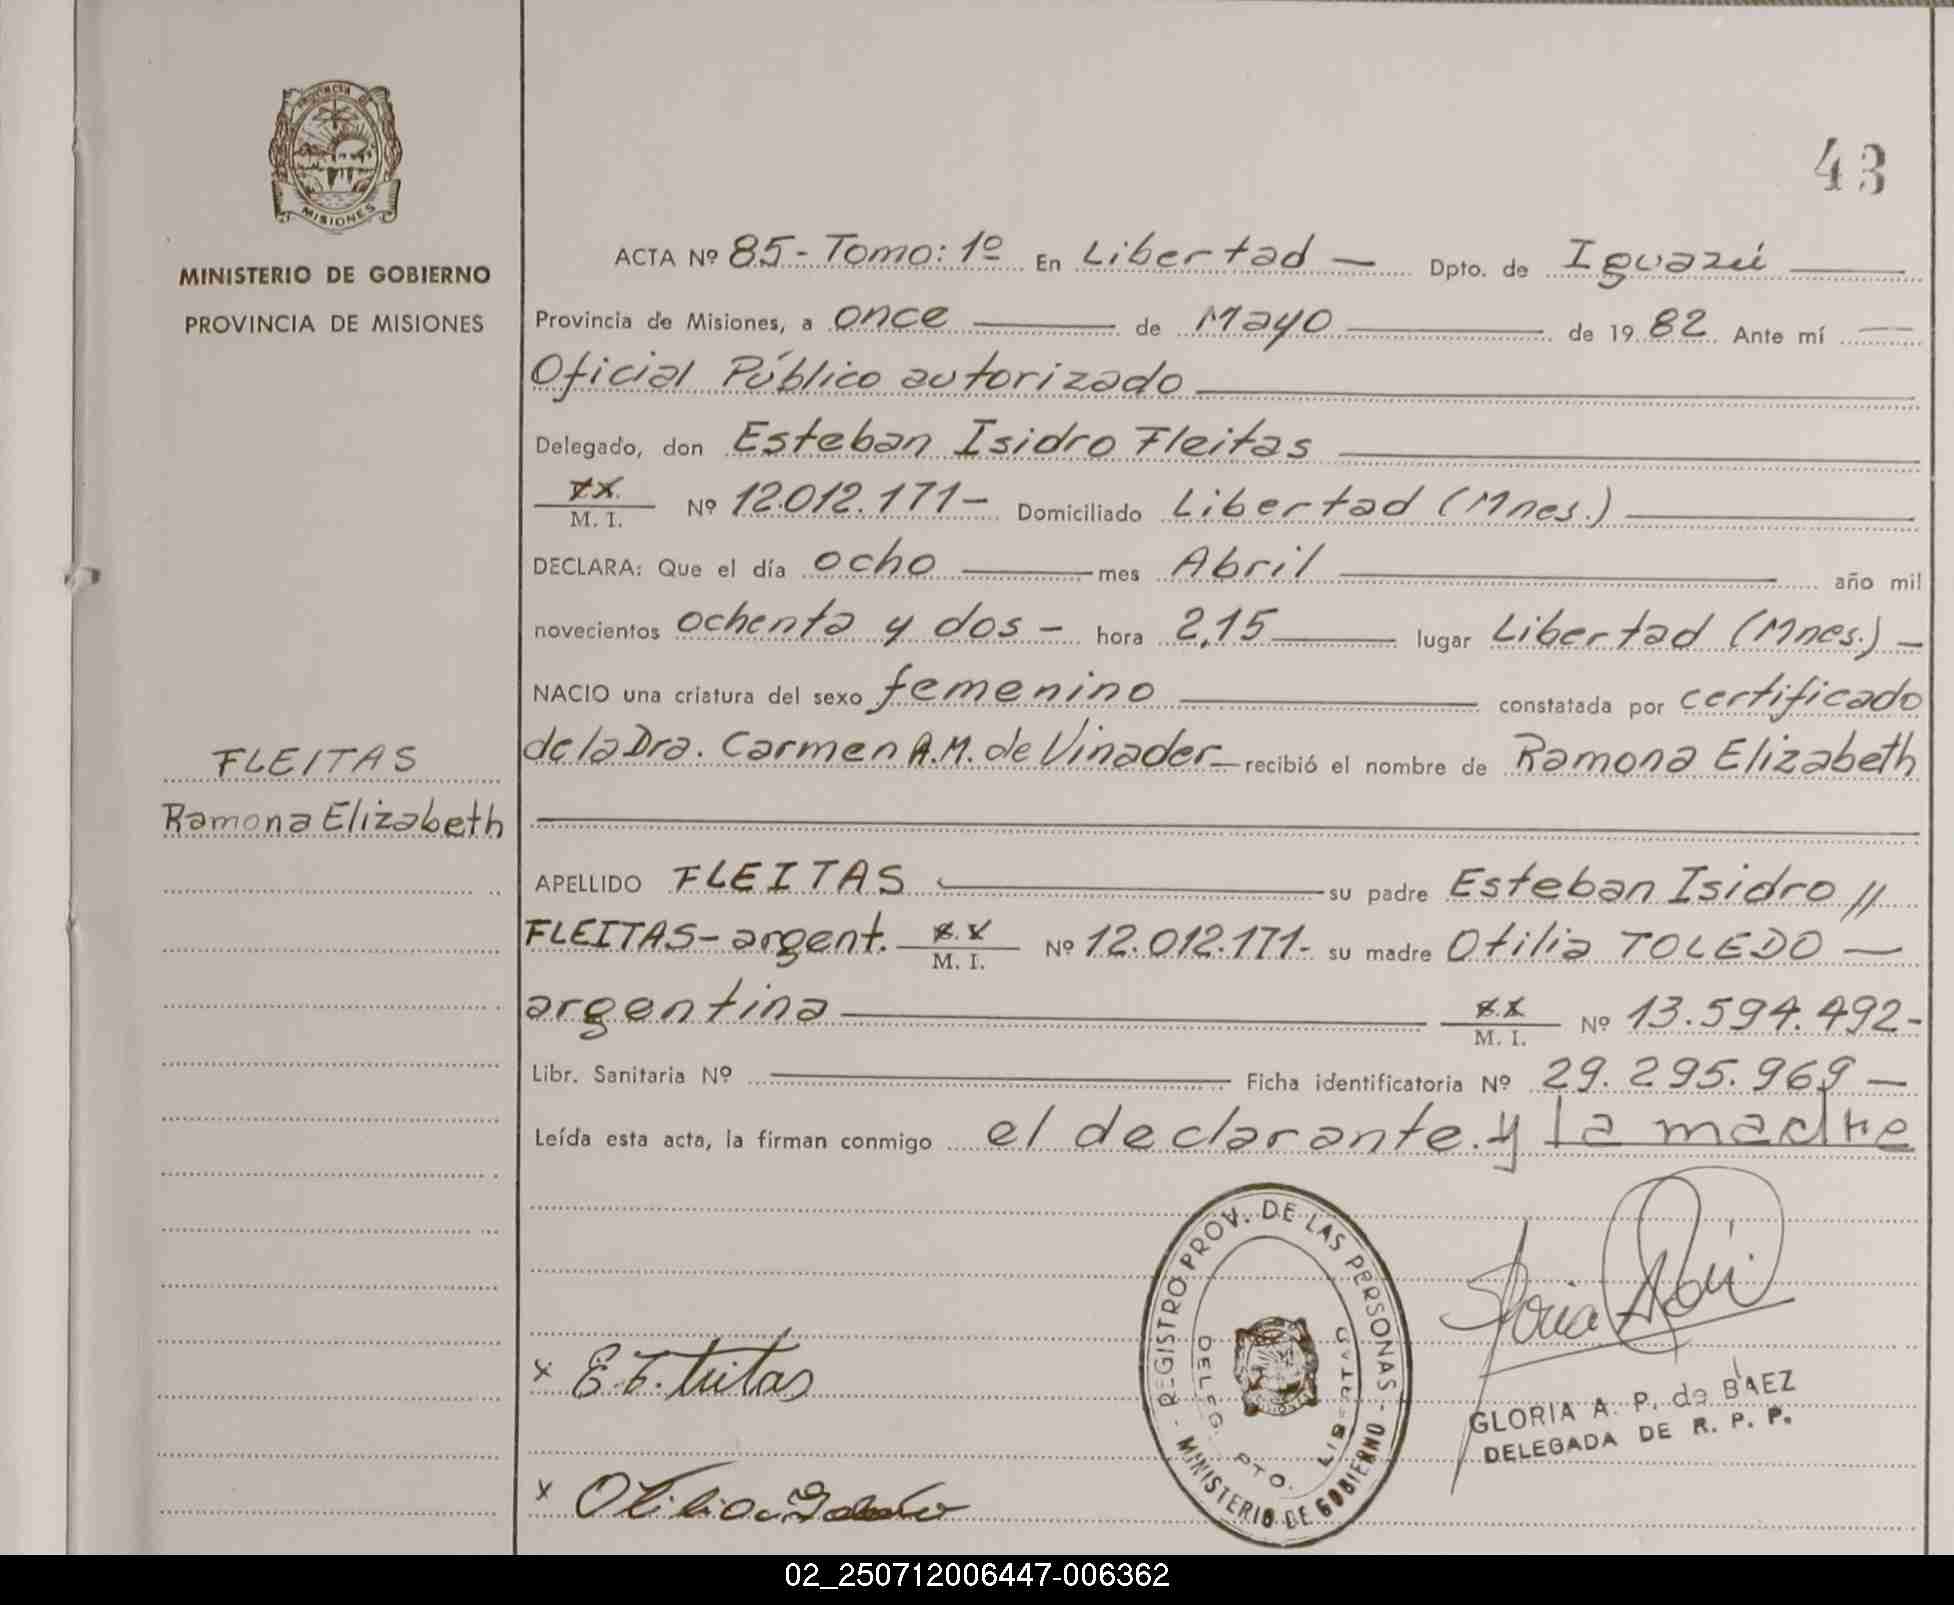 PROVINCIA DE
MISIONES
MINISTERIO DE GOBIERNO
PROVINCIA DE MISIONES
FLEITAS
Ramona Elizabeth
43
ACTA Nº 85- Tomo: 1º En Libertad — Dpto. de Iguazú
Provincia de Misiones, a once de Mayo de 1982 Ante mí
Oficial Público autorizado
Delegado, don Esteban Isidro Fleitas
M. I. Nº 12.012.171- Domiciliado Libertad (Mnes.)
DECLARA: Que el día ocho mes Abril año mil
novecientos ochenta y dos - hora 2,15 lugar Libertad (Mnes.) -
NACIO una criatura del sexo femenino constatada por certificado
de la Dra. Carmen A.M. de Vinader - recibió el nombre de Ramona Elizabeth
APELLIDO FLEITAS su padre Esteban Isidro //
FLEITAS- argent. M. I. Nº 12.012.171- su madre Otilia TOLEDO —
argentina M. I. Nº 13.594.492-
Libr. Sanitaria Nº Ficha identificatoria Nº 29.295.969 —
Leída esta acta, la firman conmigo el declarante. y la madre
REGISTRO PROV. DE LAS PERSONAS
DELEG. PTO. LIBERTAD
MINISTERIO DE GOBIERNO
GLORIA A. P. de BAEZ
DELEGADA DE R. P. P.
x
x Otilia
02_250712006447-006362